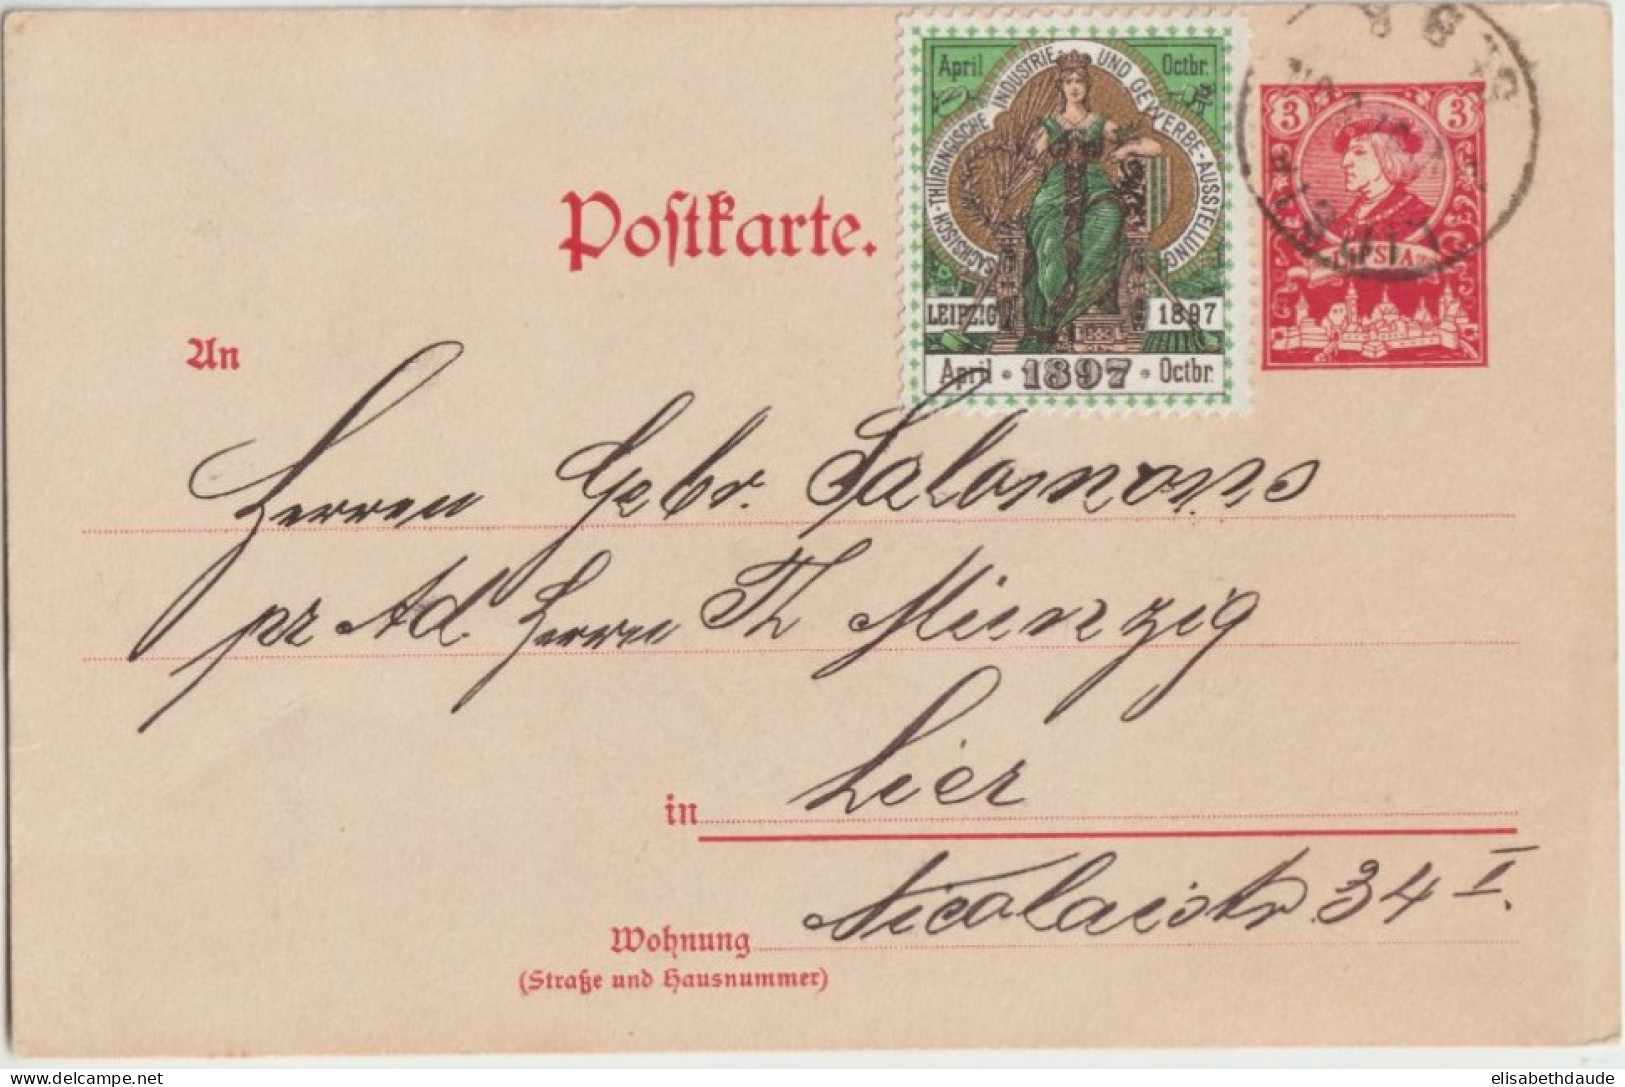 April Octbr.
SÄCHSISCH-THÜRINGISCHE INDUSTRIE UND GEWERBE-AUSSTELLUNG
LEIPZIG 1897
April · 1897 · Octbr.
3 3
LIPSIA
Poſtkarte.
An
Herren Gebr. Salomons
pr Ad. Herren Th Münzig
in Hier
Nicolaistr. 34 I.
Wohnung
(Straße und Hausnummer)
delcampe.net
elisabethdaude